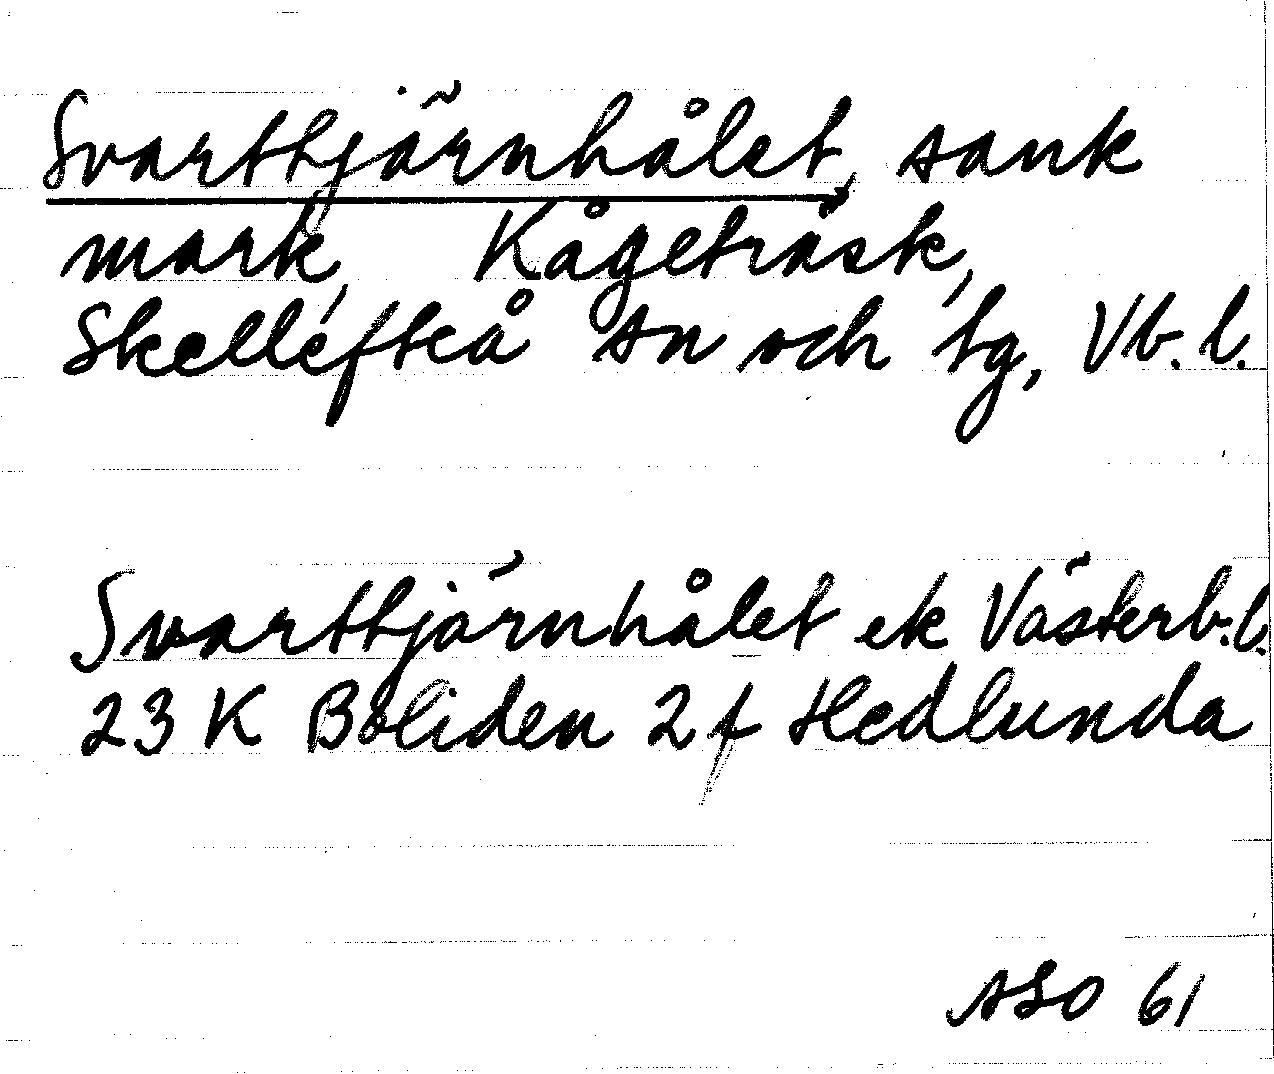 Svarttjärnhålet, sank
mark, Kågeträsk,
Skellefteå sn och tg, Vb. l.
Svarttjärnhålet ek Västerb.l.
23 K Boliden 2 f Hedlunda
ASO 61